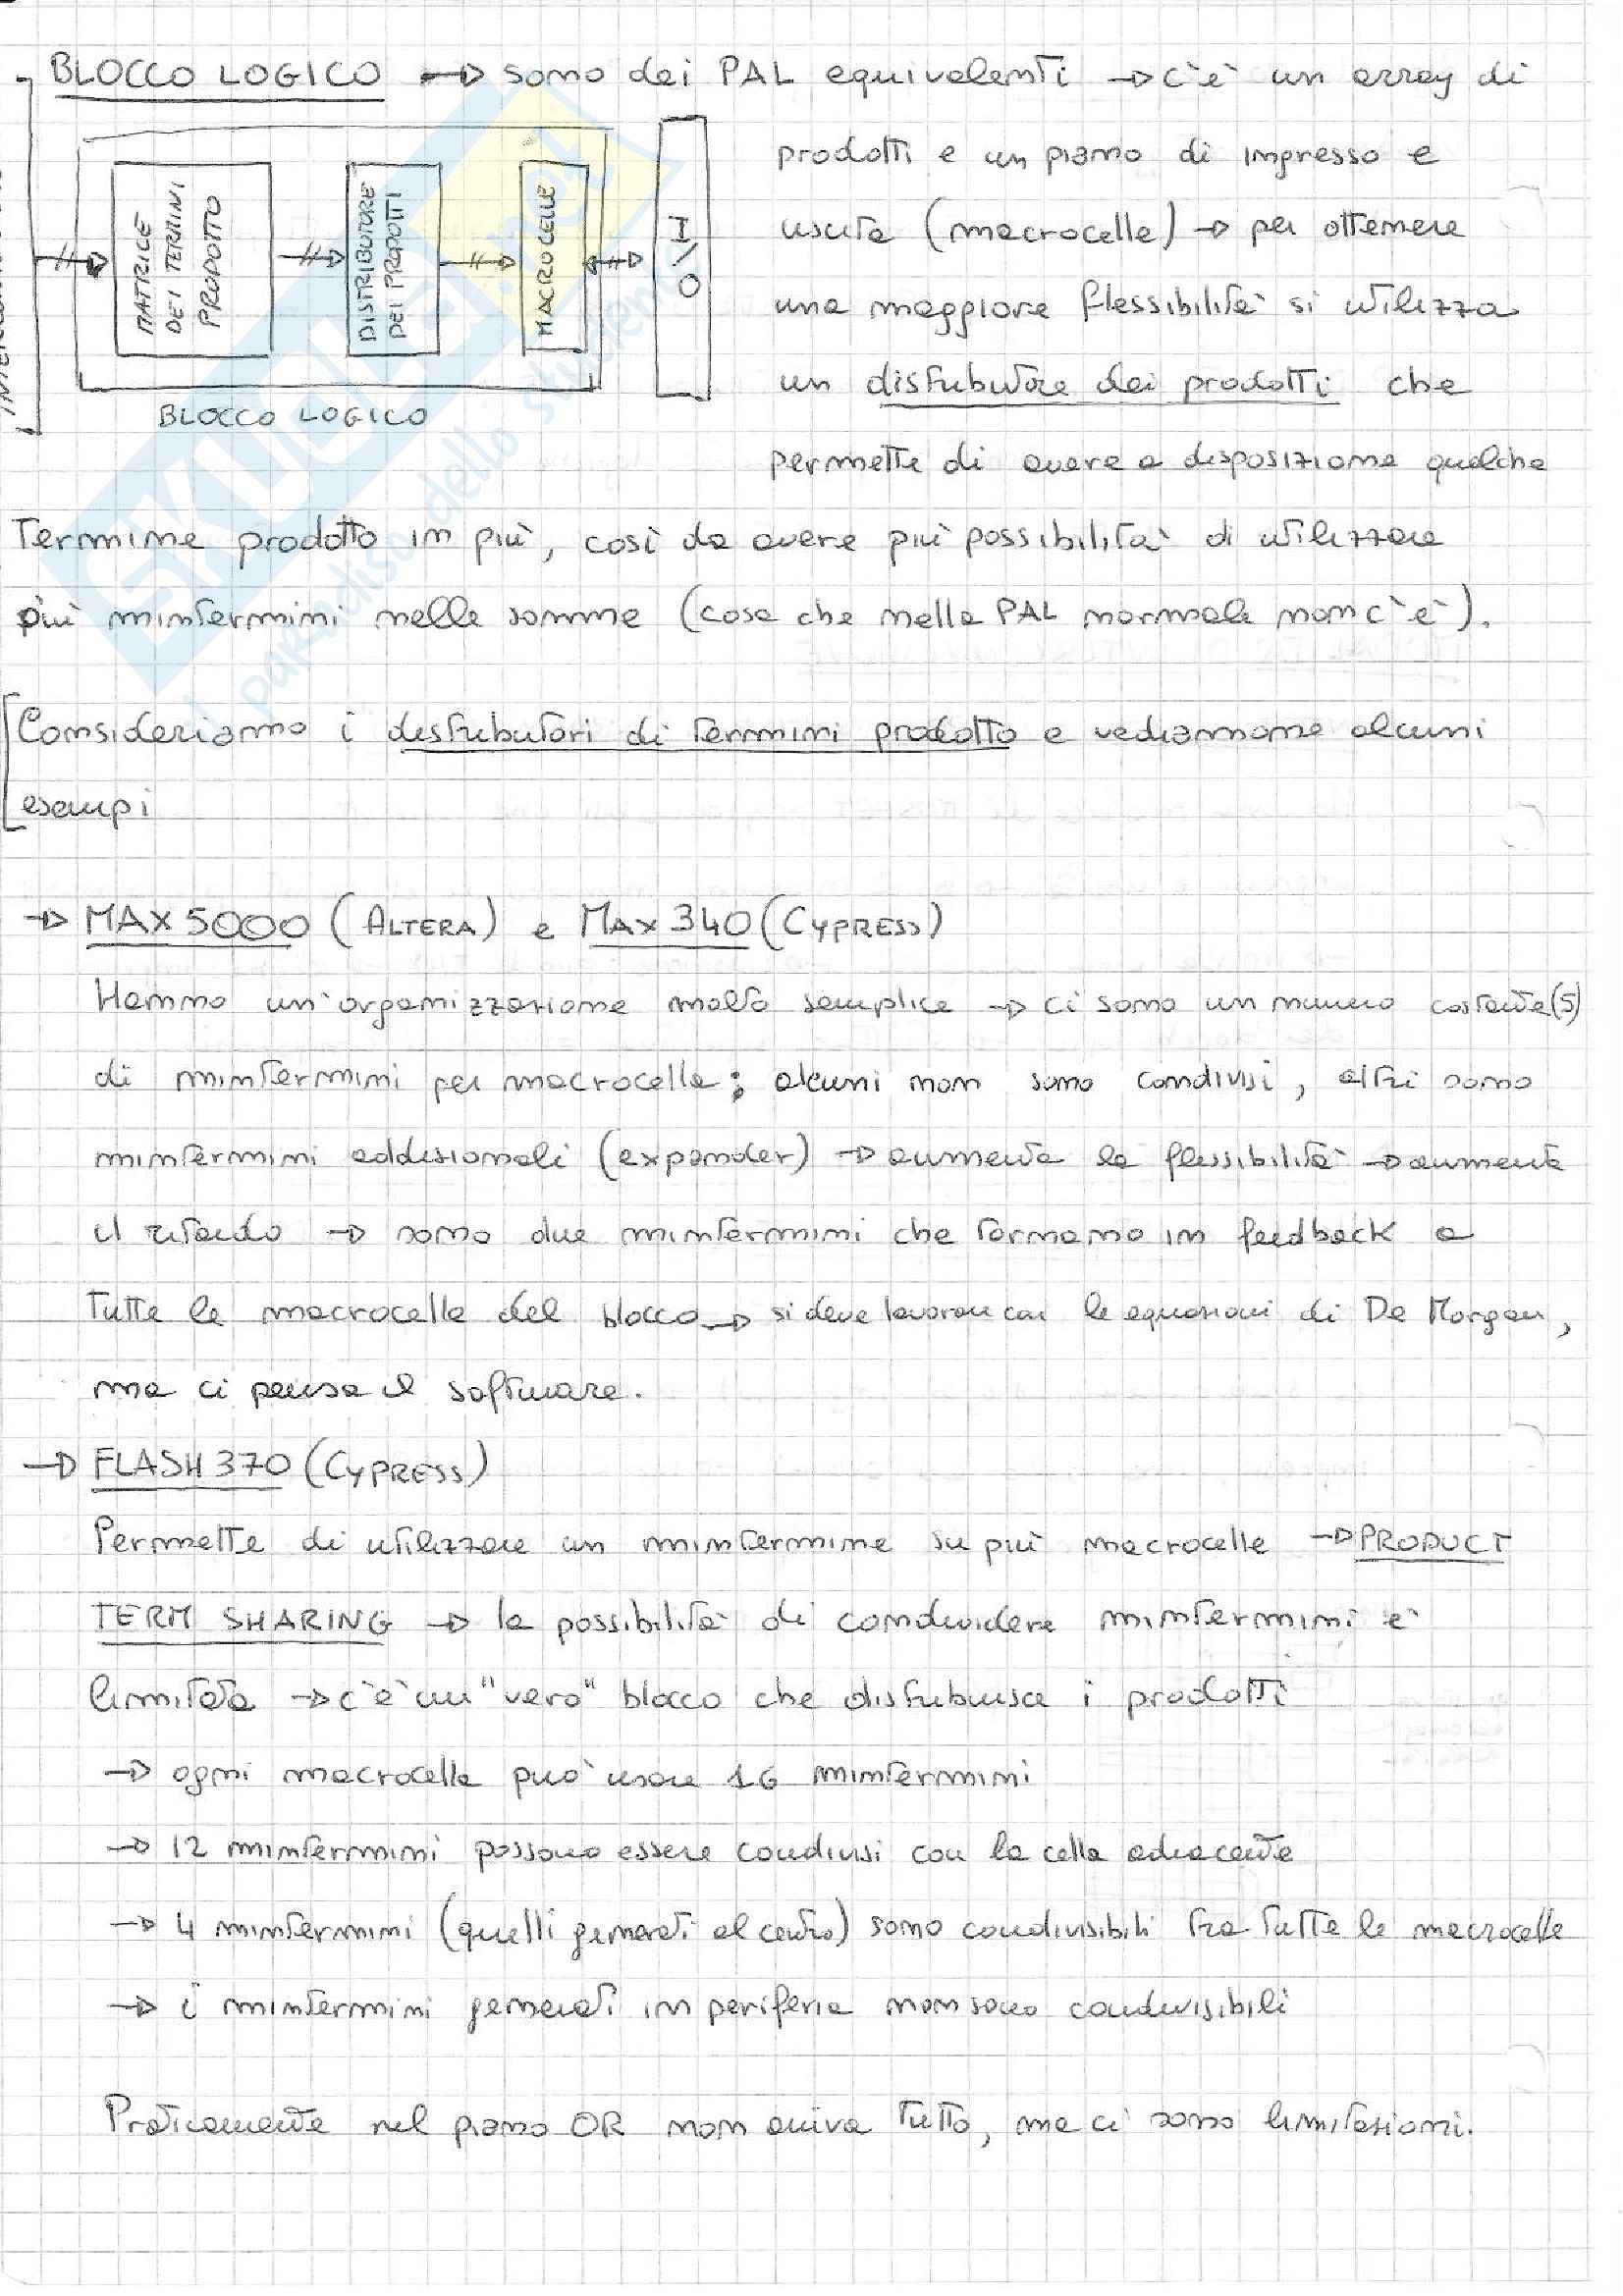 BLOCCO LOGICO → sono dei PAL equivalenti → c'è un array di
prodotti e un piano di ingresso e
uscita (macrocelle) → per ottenere
una maggiore flessibilità si utilizza
un distributore dei prodotti che
permette di avere a disposizione qualche
MATRICE
DEI TERMINI
PRODOTTO
DISTRIBUTORE
DEI PRODOTTI
MACROCELLE
I/O
BLOCCO LOGICO
termine prodotto in più, così da avere più possibilità di utilizzare
più mintermini nelle somme (cosa che nella PAL normale non c'è).
Consideriamo i distributori di termini prodotto e vediamone alcuni
esempi
→ MAX 5000 (ALTERA) e MAX 340 (CYPRESS)
Hanno un'organizzazione molto semplice → ci sono un numero costante (5)
di mintermini per macrocella; alcuni non sono condivisi, altri sono
mintermini addizionali (expander) → aumenta la flessibilità → aumenta
il ritardo → sono due mintermini che tornano in feedback a
tutte le macrocelle del blocco → si deve lavorare con le equazioni di De Morgan,
ma ci pensa il software.
→ FLASH 370 (CYPRESS)
Permette di utilizzare un mintermine su più macrocelle → PRODUCT
TERM SHARING → la possibilità di condividere mintermini è
limitata → c'è un "vero" blocco che distribuisce i prodotti
→ ogni macrocella può usare 16 mintermini
→ 12 mintermini possono essere condivisi con la cella adiacente
→ 4 mintermini (quelli generati al centro) sono condivisibili tra tutte le macrocelle
→ i mintermini generati in periferia non sono condivisibili
Praticamente nel piano OR non arriva tutto, ma ci sono limitazioni.
SKUOLA.net
il paradiso dello studente